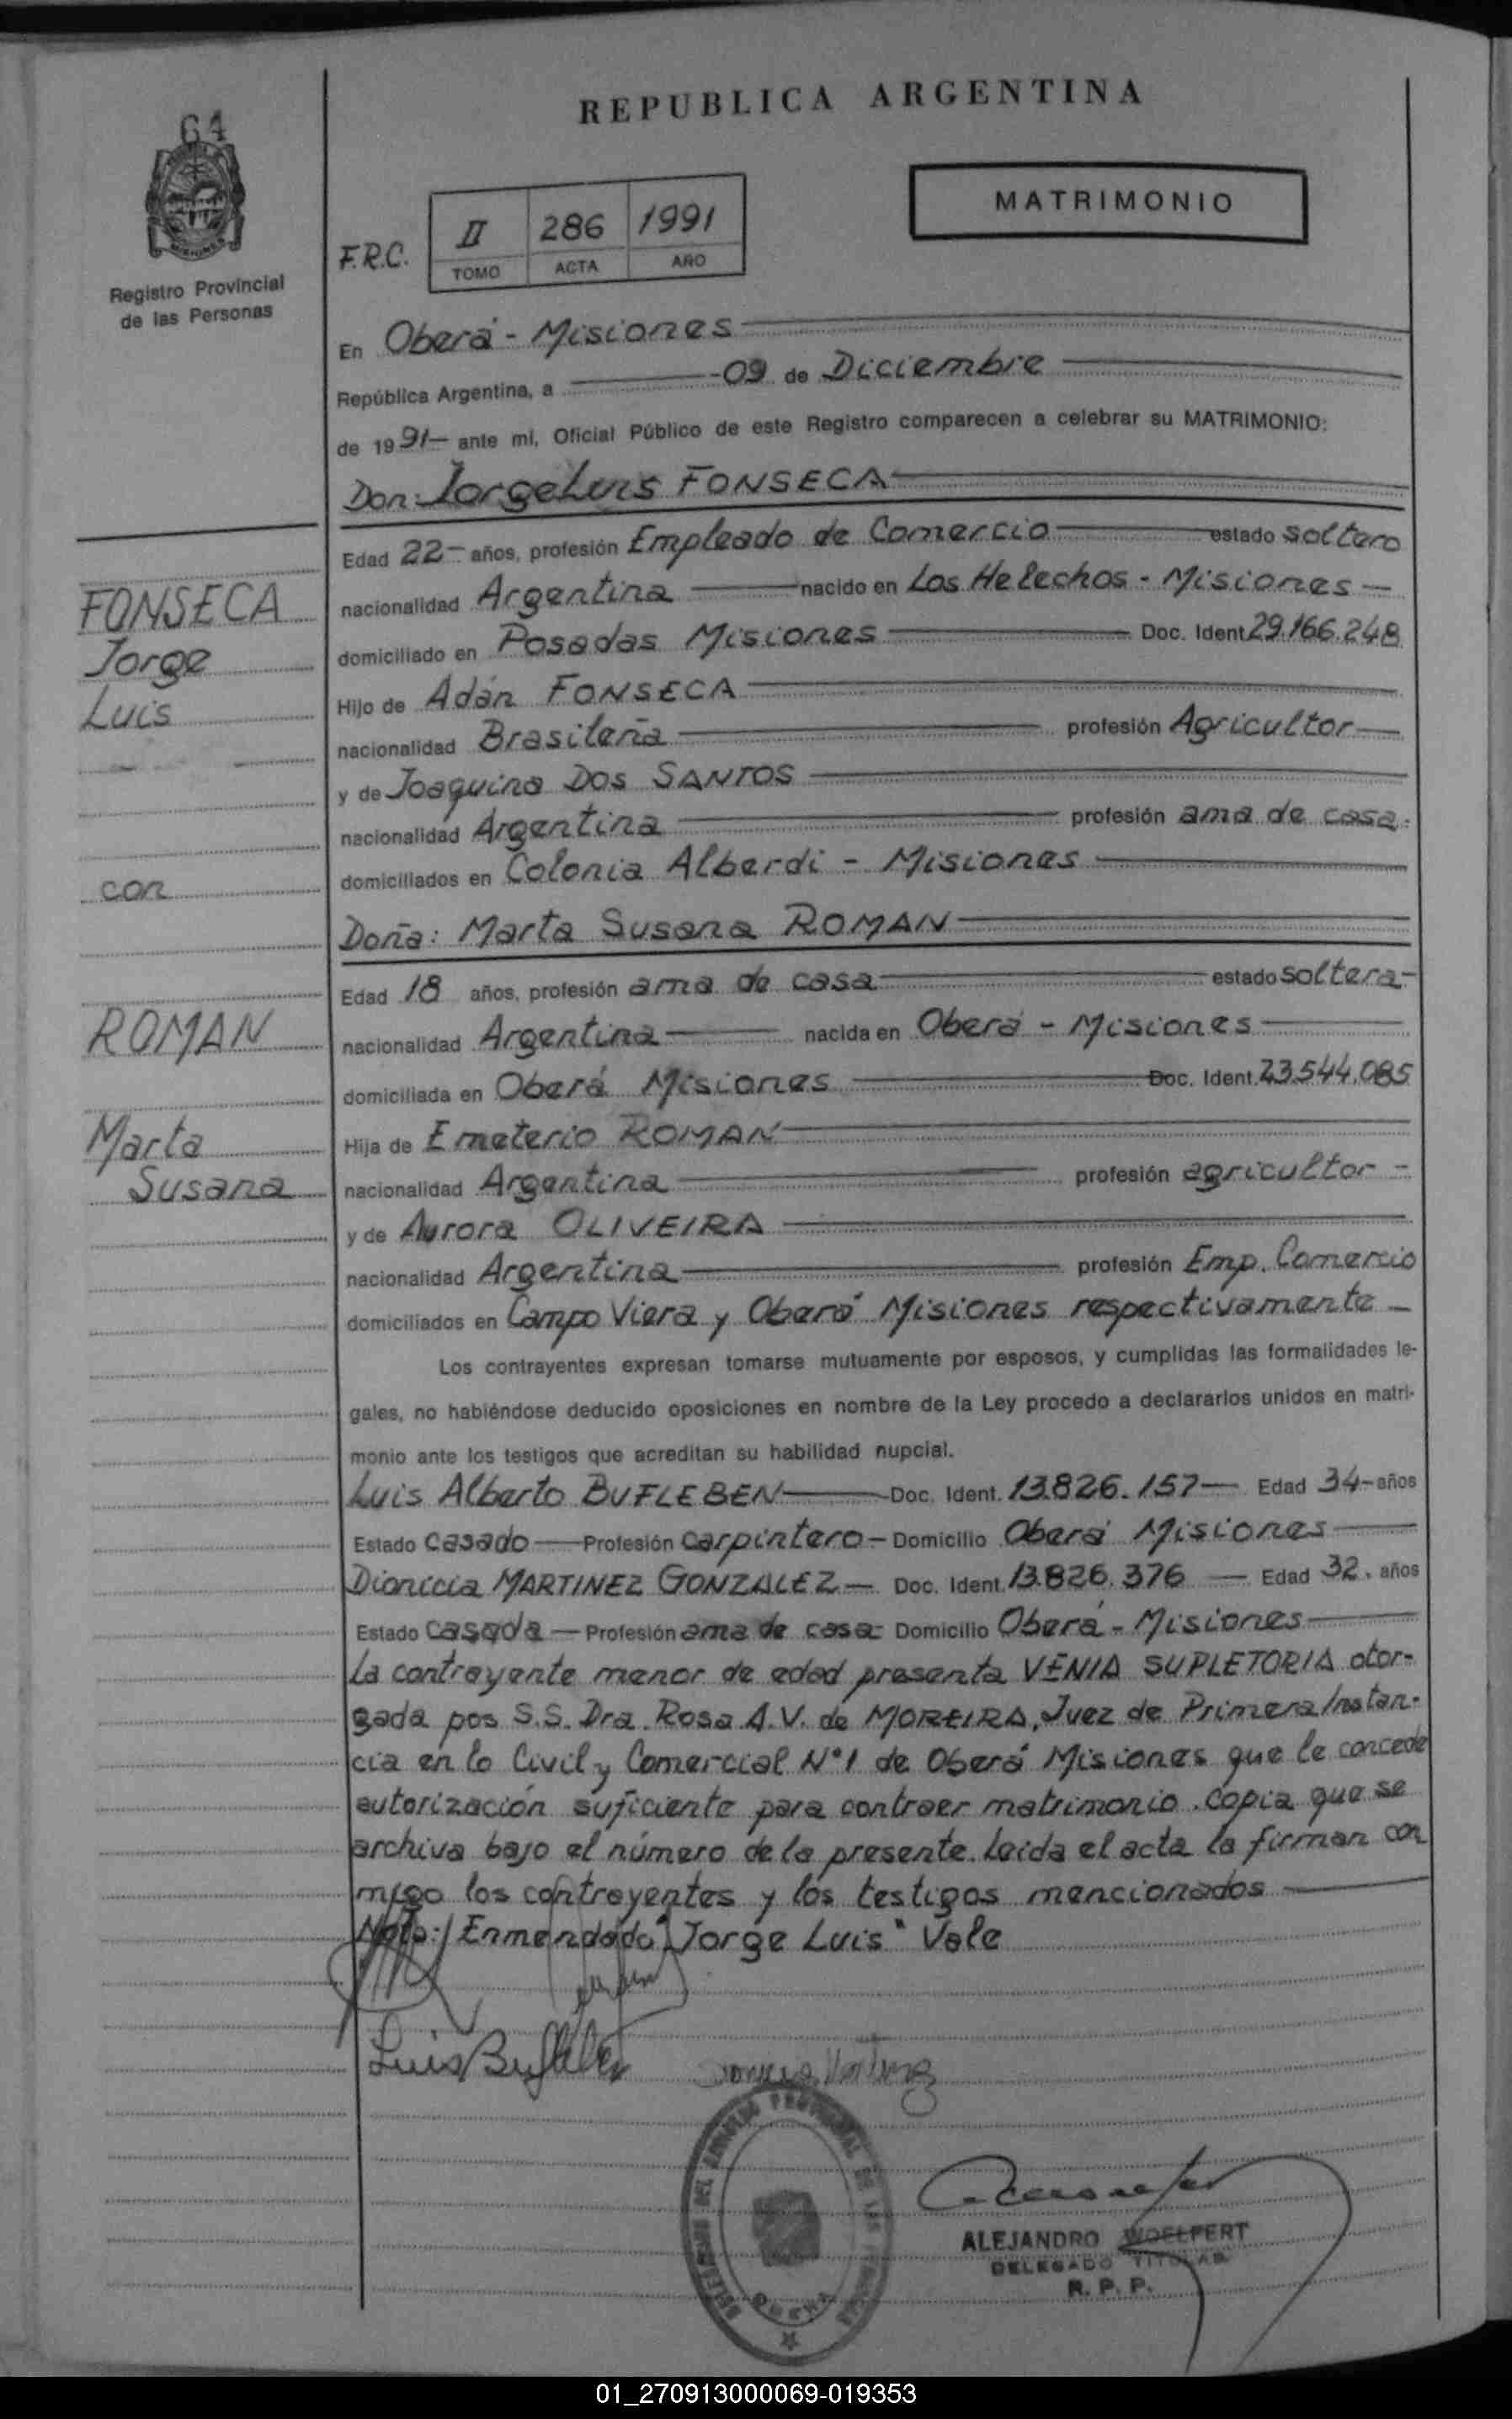 REPUBLICA ARGENTINA
64
MATRIMONIO
F.R.C.
II 286 1991
TOMO ACTA AÑO
Registro Provincial
de las Personas
En Oberá - Misiones
República Argentina, a 09 de Diciembre
de 1991- ante mí, Oficial Público de este Registro comparecen a celebrar su MATRIMONIO:
Don: Jorge Luis FONSECA
Edad 22- años, profesión Empleado de Comercio estado soltero
nacionalidad Argentina nacido en Los Helechos - Misiones -
domiciliado en Posadas Misiones Doc. Ident 29.166.248
Hijo de Adán FONSECA
nacionalidad Brasileña profesión Agricultor
y de Joaquina DOS SANTOS
nacionalidad Argentina profesión ama de casa.
domiciliados en Colonia Alberdi - Misiones
Doña: Marta Susana ROMAN
Edad 18 años, profesión ama de casa estado soltera-
nacionalidad Argentina nacida en Oberá - Misiones
domiciliada en Oberá Misiones Doc. Ident. 23.544.085
Hija de Emeterio ROMAN
nacionalidad Argentina profesión agricultor -
y de Aurora OLIVEIRA
nacionalidad Argentina profesión Emp. Comercio
domiciliados en Campo Viera y Oberá Misiones respectivamente -
Los contrayentes expresan tomarse mutuamente por esposos, y cumplidas las formalidades le-
gales, no habiéndose deducido oposiciones en nombre de la Ley procedo a declararlos unidos en matri-
monio ante los testigos que acreditan su habilidad nupcial.
Luis Alberto BUFLEBEN Doc. Ident. 13.826.157- Edad 34- años
Estado Casado Profesión carpintero - Domicilio Oberá Misiones
Dionicia MARTINEZ GONZALEZ - Doc. Ident. 13.826.376 - Edad 32. años
Estado Casada - Profesión ama de casa - Domicilio Oberá - Misiones
La contrayente menor de edad presenta VENIA SUPLETORIA otor-
gada pos S.S. Dra. Rosa A.V. de MOREIRA, Juez de Primera Instan-
cia en lo Civil y Comercial N°1 de Oberá Misiones que le concede
autorización suficiente para contraer matrimonio. copia que se
archiva bajo el número de la presente. Leida el acta la firman con
migo los contrayentes y los testigos mencionados
Nota: Enmendado "Jorge Luis" Vale
FONSECA
Jorge
Luis
con
ROMAN
Marta
Susana
Luis Bufleben
ALEJANDRO WOELFERT
DELEGADO TITULAR
R. P. P.
OBERA
01_270913000069-019353